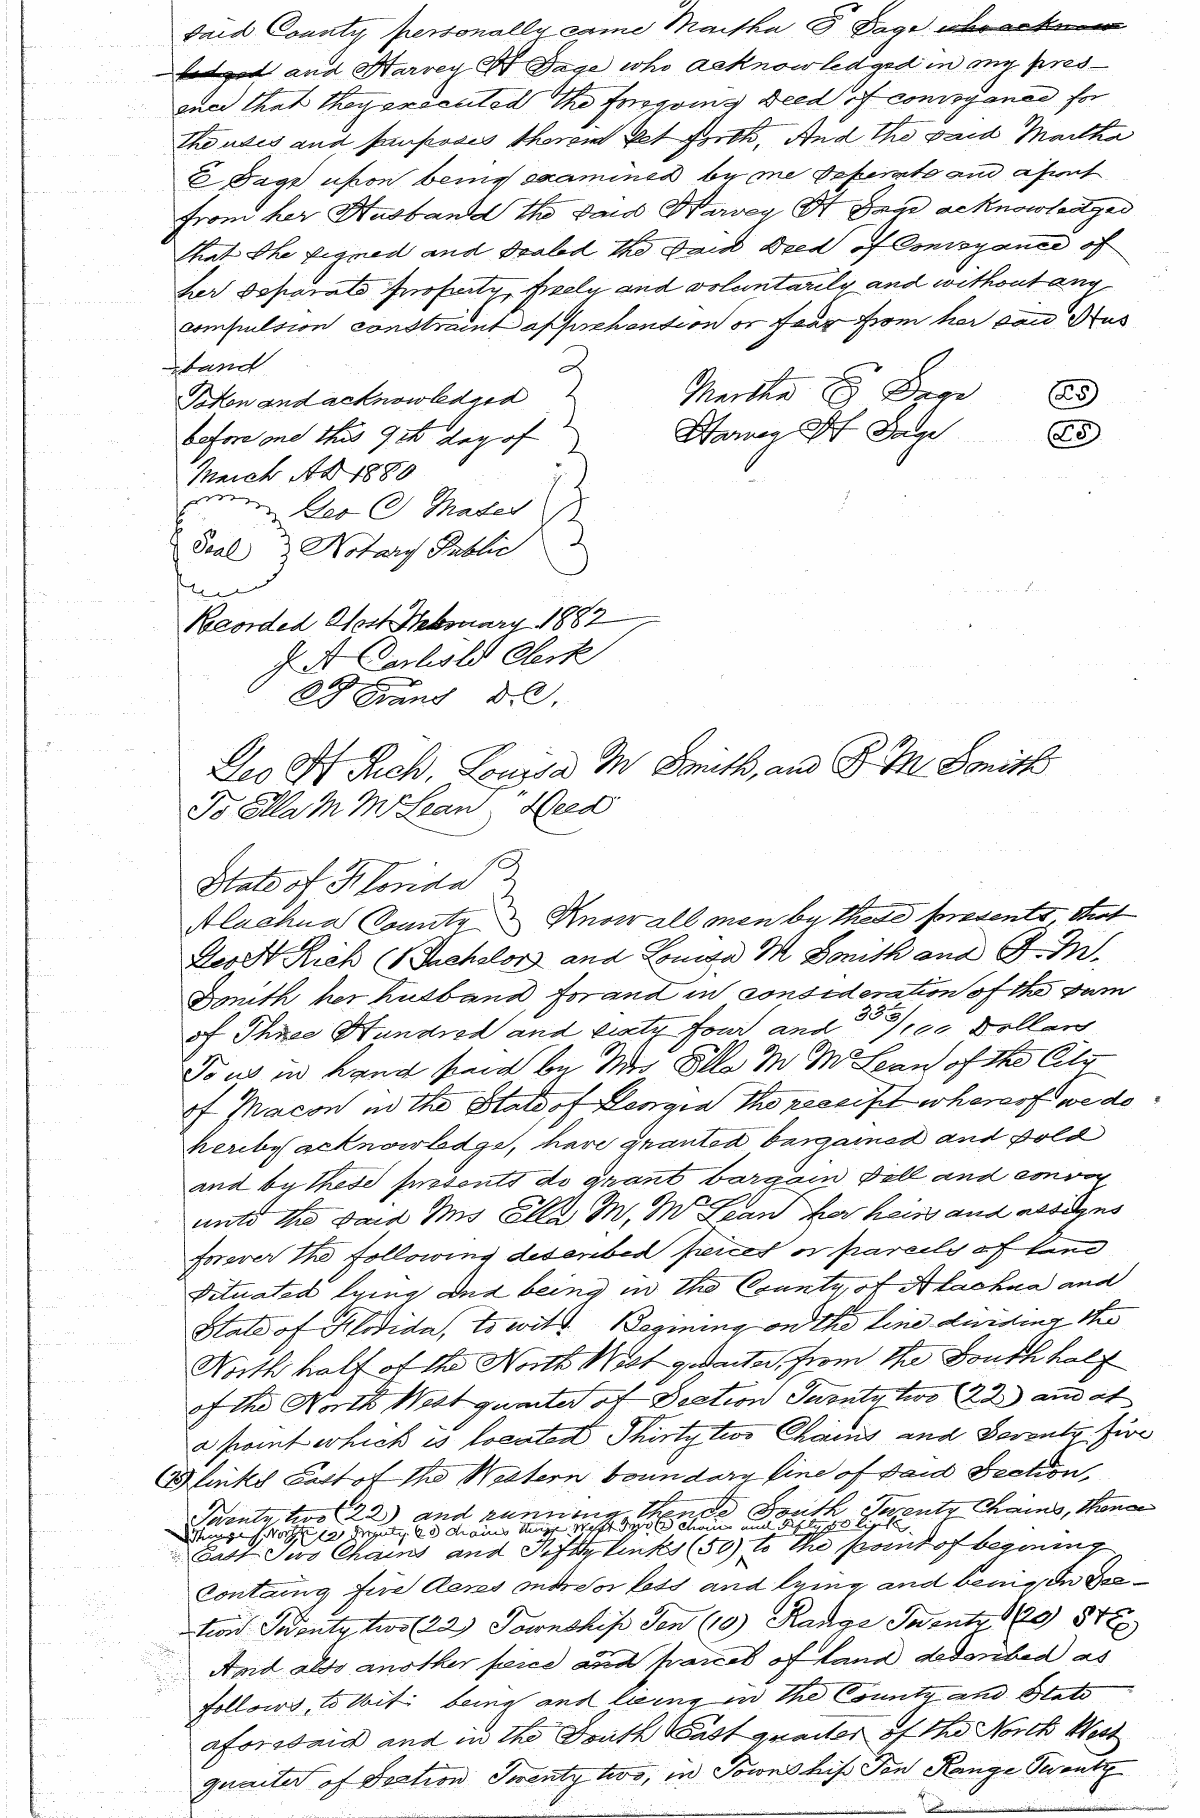 said County personally came Martha E Sage who acknow
ledged and Harvey H Sage who acknowledged in my pres-
ence that they executed the foregoing Deed of conveyance for
the uses and purposes therein set forth, And the said Martha
E Sage upon being examined by me seperate and apart
from her Husband the said Harvey H Sage acknowledged
that she signed and sealed the said Deed of Conveyance of
her separate property, freely and voluntarily and without any
compulsion constraint apprehension or fear from her said Hus
band
Taken and acknowledged
before me this 9th day of
March AD 1880
Martha E Sage LS
Harvey H Sage LS
Geo C
Seal Notary Public
Recorded 21st February 1882
J A Carlisle Clerk
Evans D.C.
Geo H Rich, Louisa M Smith, and B M Smith
To Ella M McLean " Deed
State of Florida
Alachua County Know all men by these presents, that
Geo H Rich (Bachelor) and Louisa M Smith and B. M.
Smith her husband for and in consideration of the sum
of Three Hundred and sixty four and /100 Dollars
To us in hand paid by Mrs Ella M McLean of the City
of Macon in the State of Georgia the receipt whereof we do
hereby acknowledge, have granted bargained and sold
and by these presents do grant bargain sell and convey
unto the said Mrs Ella M, McLean her heirs and assigns
forever the following described peices or parcels of land
situated lying and being in the County, of Alachua and
State of Florida, to wit. Begining on the line dividing the
North half of the North West quarter, from the South half
of the North West quarter of Section Twenty two (22) and at
a point which is located Thirty two Chains and Seventy five
(75) links East of the Western boundary line of said Section,
Twenty two (22) and running thence South Twenty Chains, thence
thence North (20) Twenty (20) chains thence West Two (2) chains and Fifty 50 links
East Two Chains and Fifty links (50) to the point of begining
Containg five Acres more or less and lying and being in Sec-
tion Twenty two (22) Township Ten (10) Range Twenty (20) S & E
And also another peice and parcel of land described as
follows, to wit: being and lieing in the County and State
aforesaid and in the South East quarter of the North West
quarter of Section Twenty two, in Township Ten Range Twenty